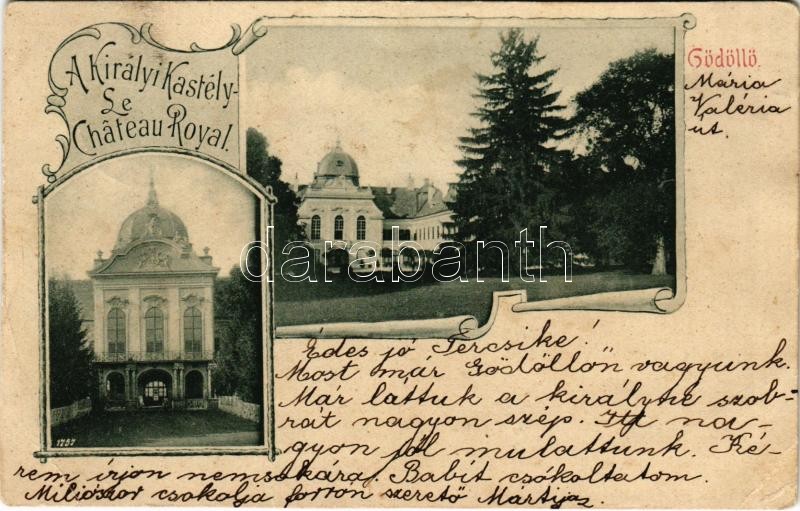 A Királyi Kastély-
Le
Château Royal.
Gödöllő.
Mária
Valéria
út.
darabanth
1757
Édes jó Tercsike!
Most már Gödöllőn vagyunk.
Már láttuk a királyné szob-
rát nagyon szép. Itt na-
gyon jól mulattunk. Ké-
rem írjon nemsokára. Babit csókoltatom.
Miliószor csokolja forrón szerető